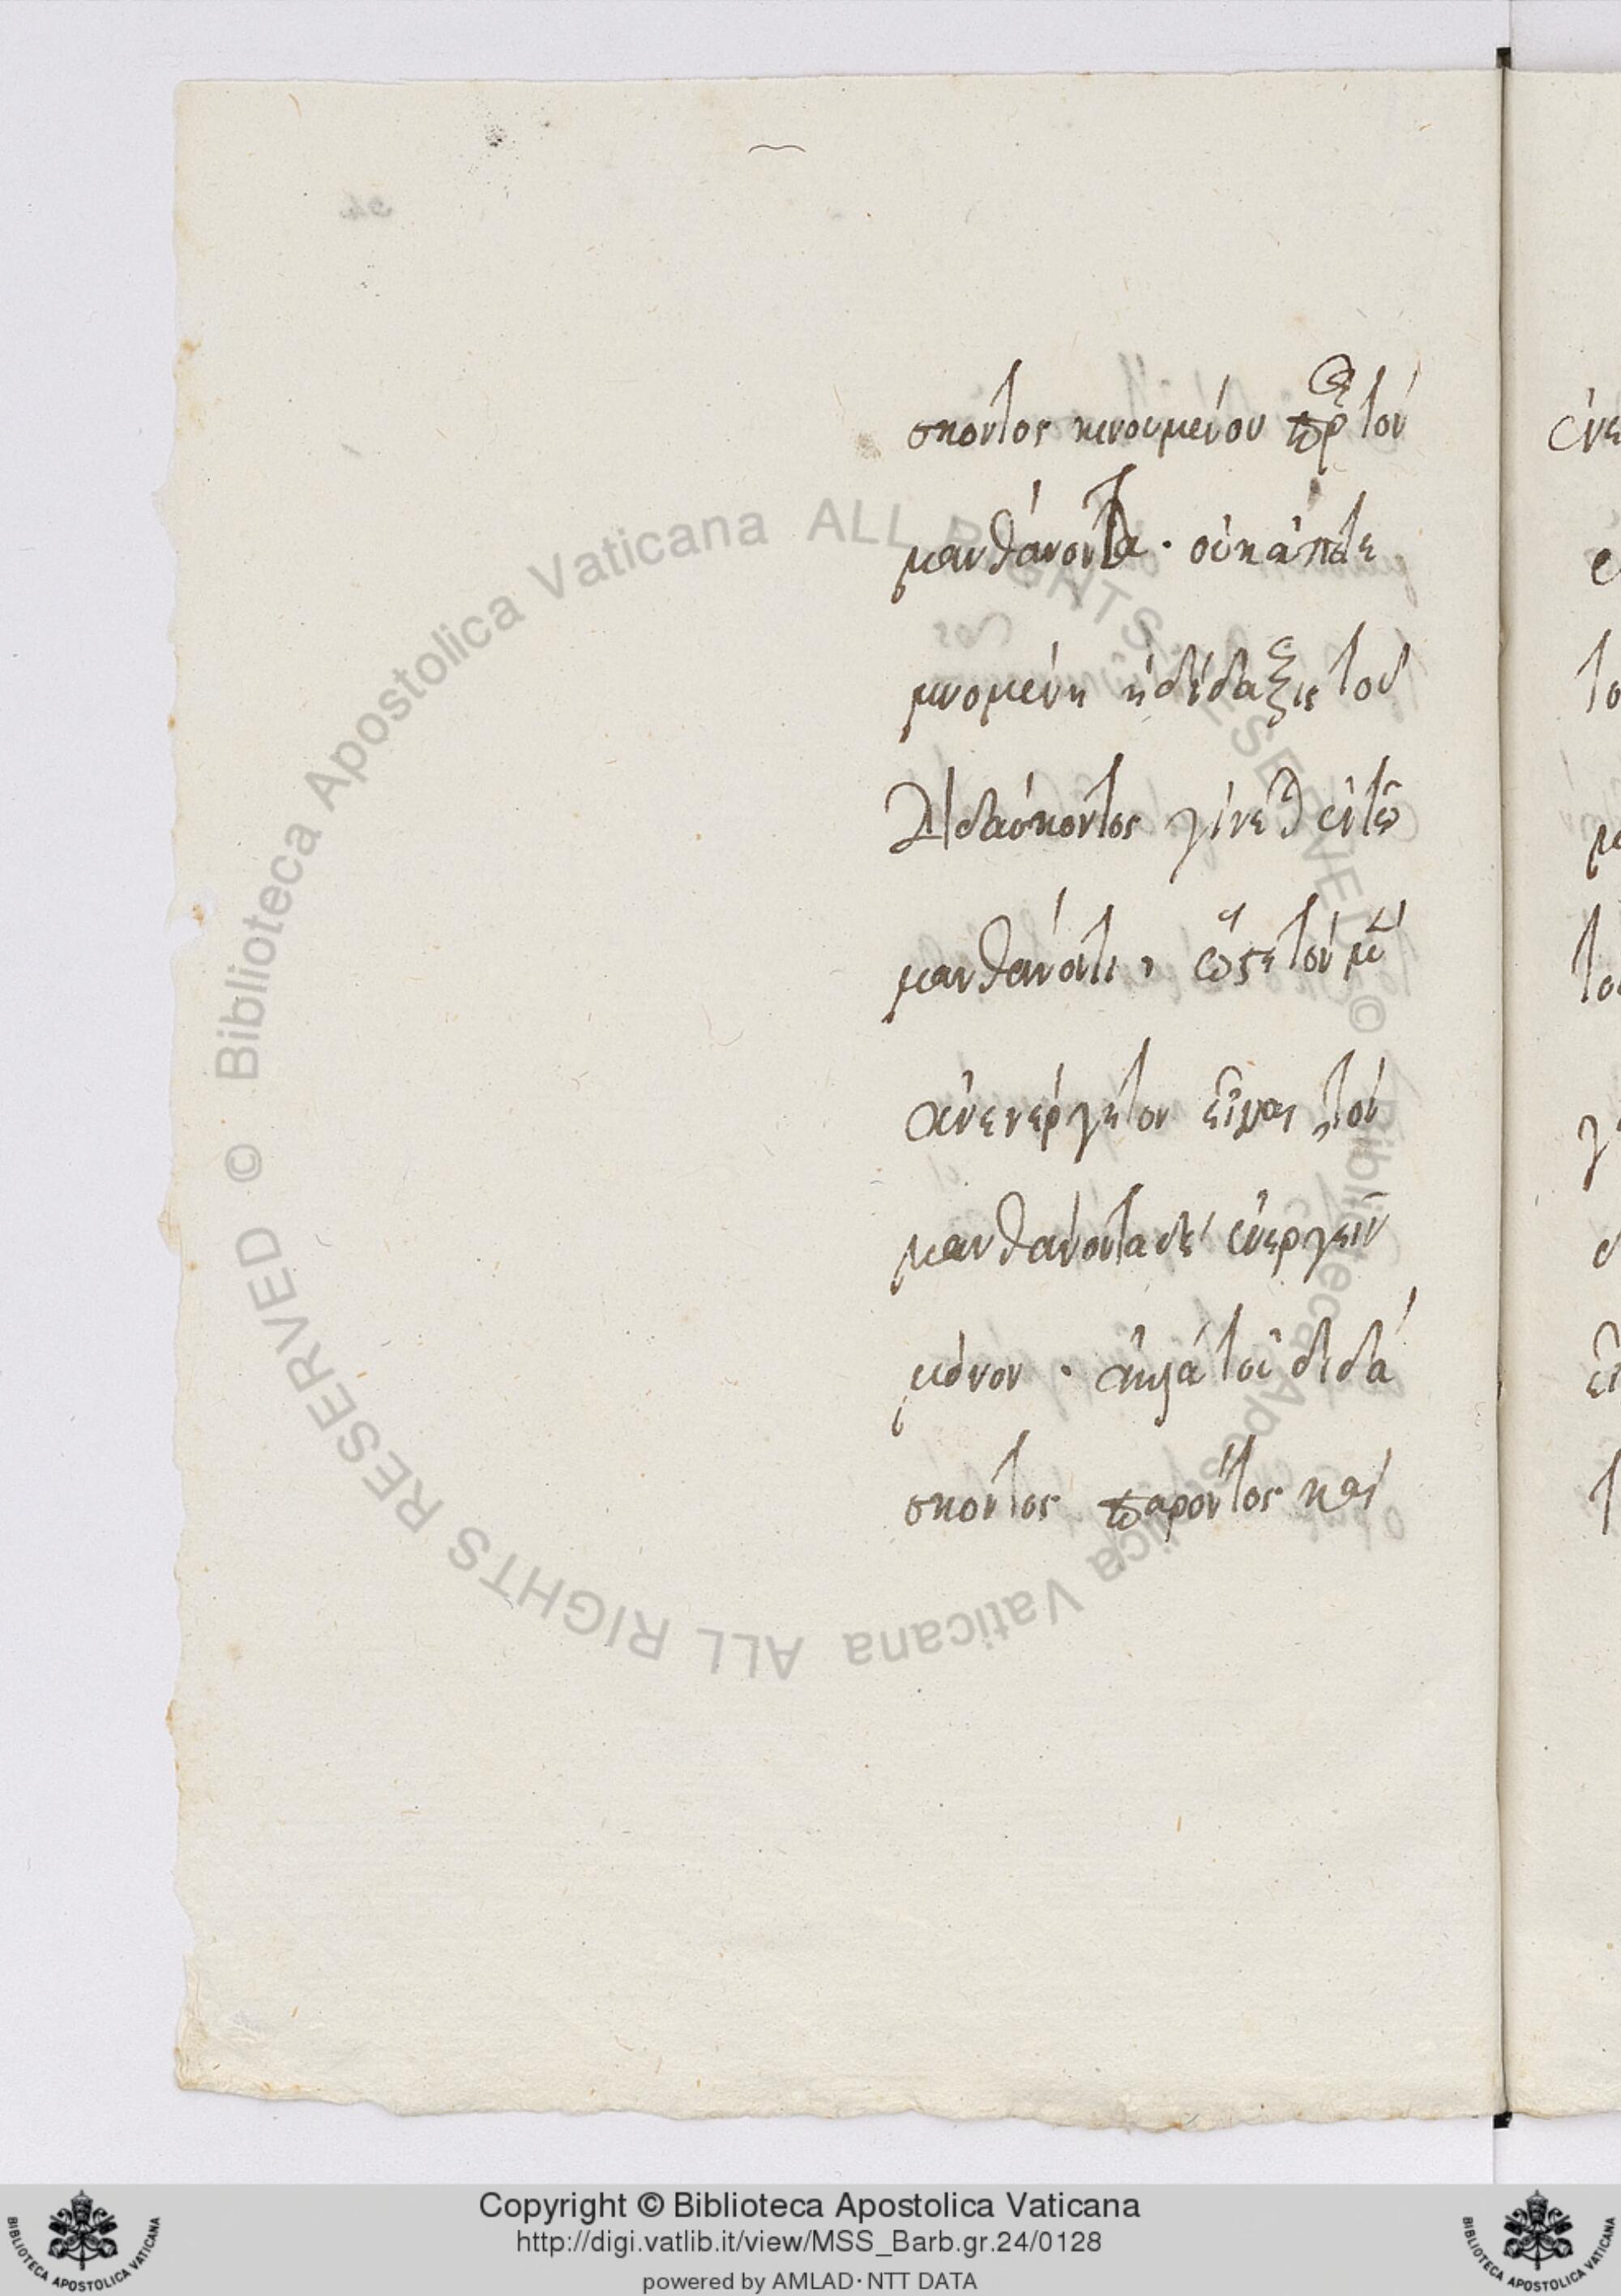 σκοντος κινουμένου πρ τὸν
μανθάνοντα · οὐκ ἀποτε
μνομένη ἡ δίδαξις τοῦ
Διδάσκοντος γίνεται ἐν τῷ
μανθάνοντι, ὥστε τὸν μὲν
ἀνενέργητον εἶναι, τὸν
μανθάνοντα δὲ ἐνεργεῖν
μόνον · ἀλλὰ τοῦ διδά
σκοντος παρόντος καὶ
Biblioteca Apostolica Vaticana ALL RIGHTS RESERVED ©
Biblioteca Apostolica Vaticana ALL RIGHTS RESERVED ©
Copyright © Biblioteca Apostolica Vaticana
http://digi.vatlib.it/view/MSS_Barb.gr.24/0128
powered by AMLAD·NTT DATA
BIBLIOTECA APOSTOLICA VATICANA
BIBLIOTECA APOSTOLICA VATICANA